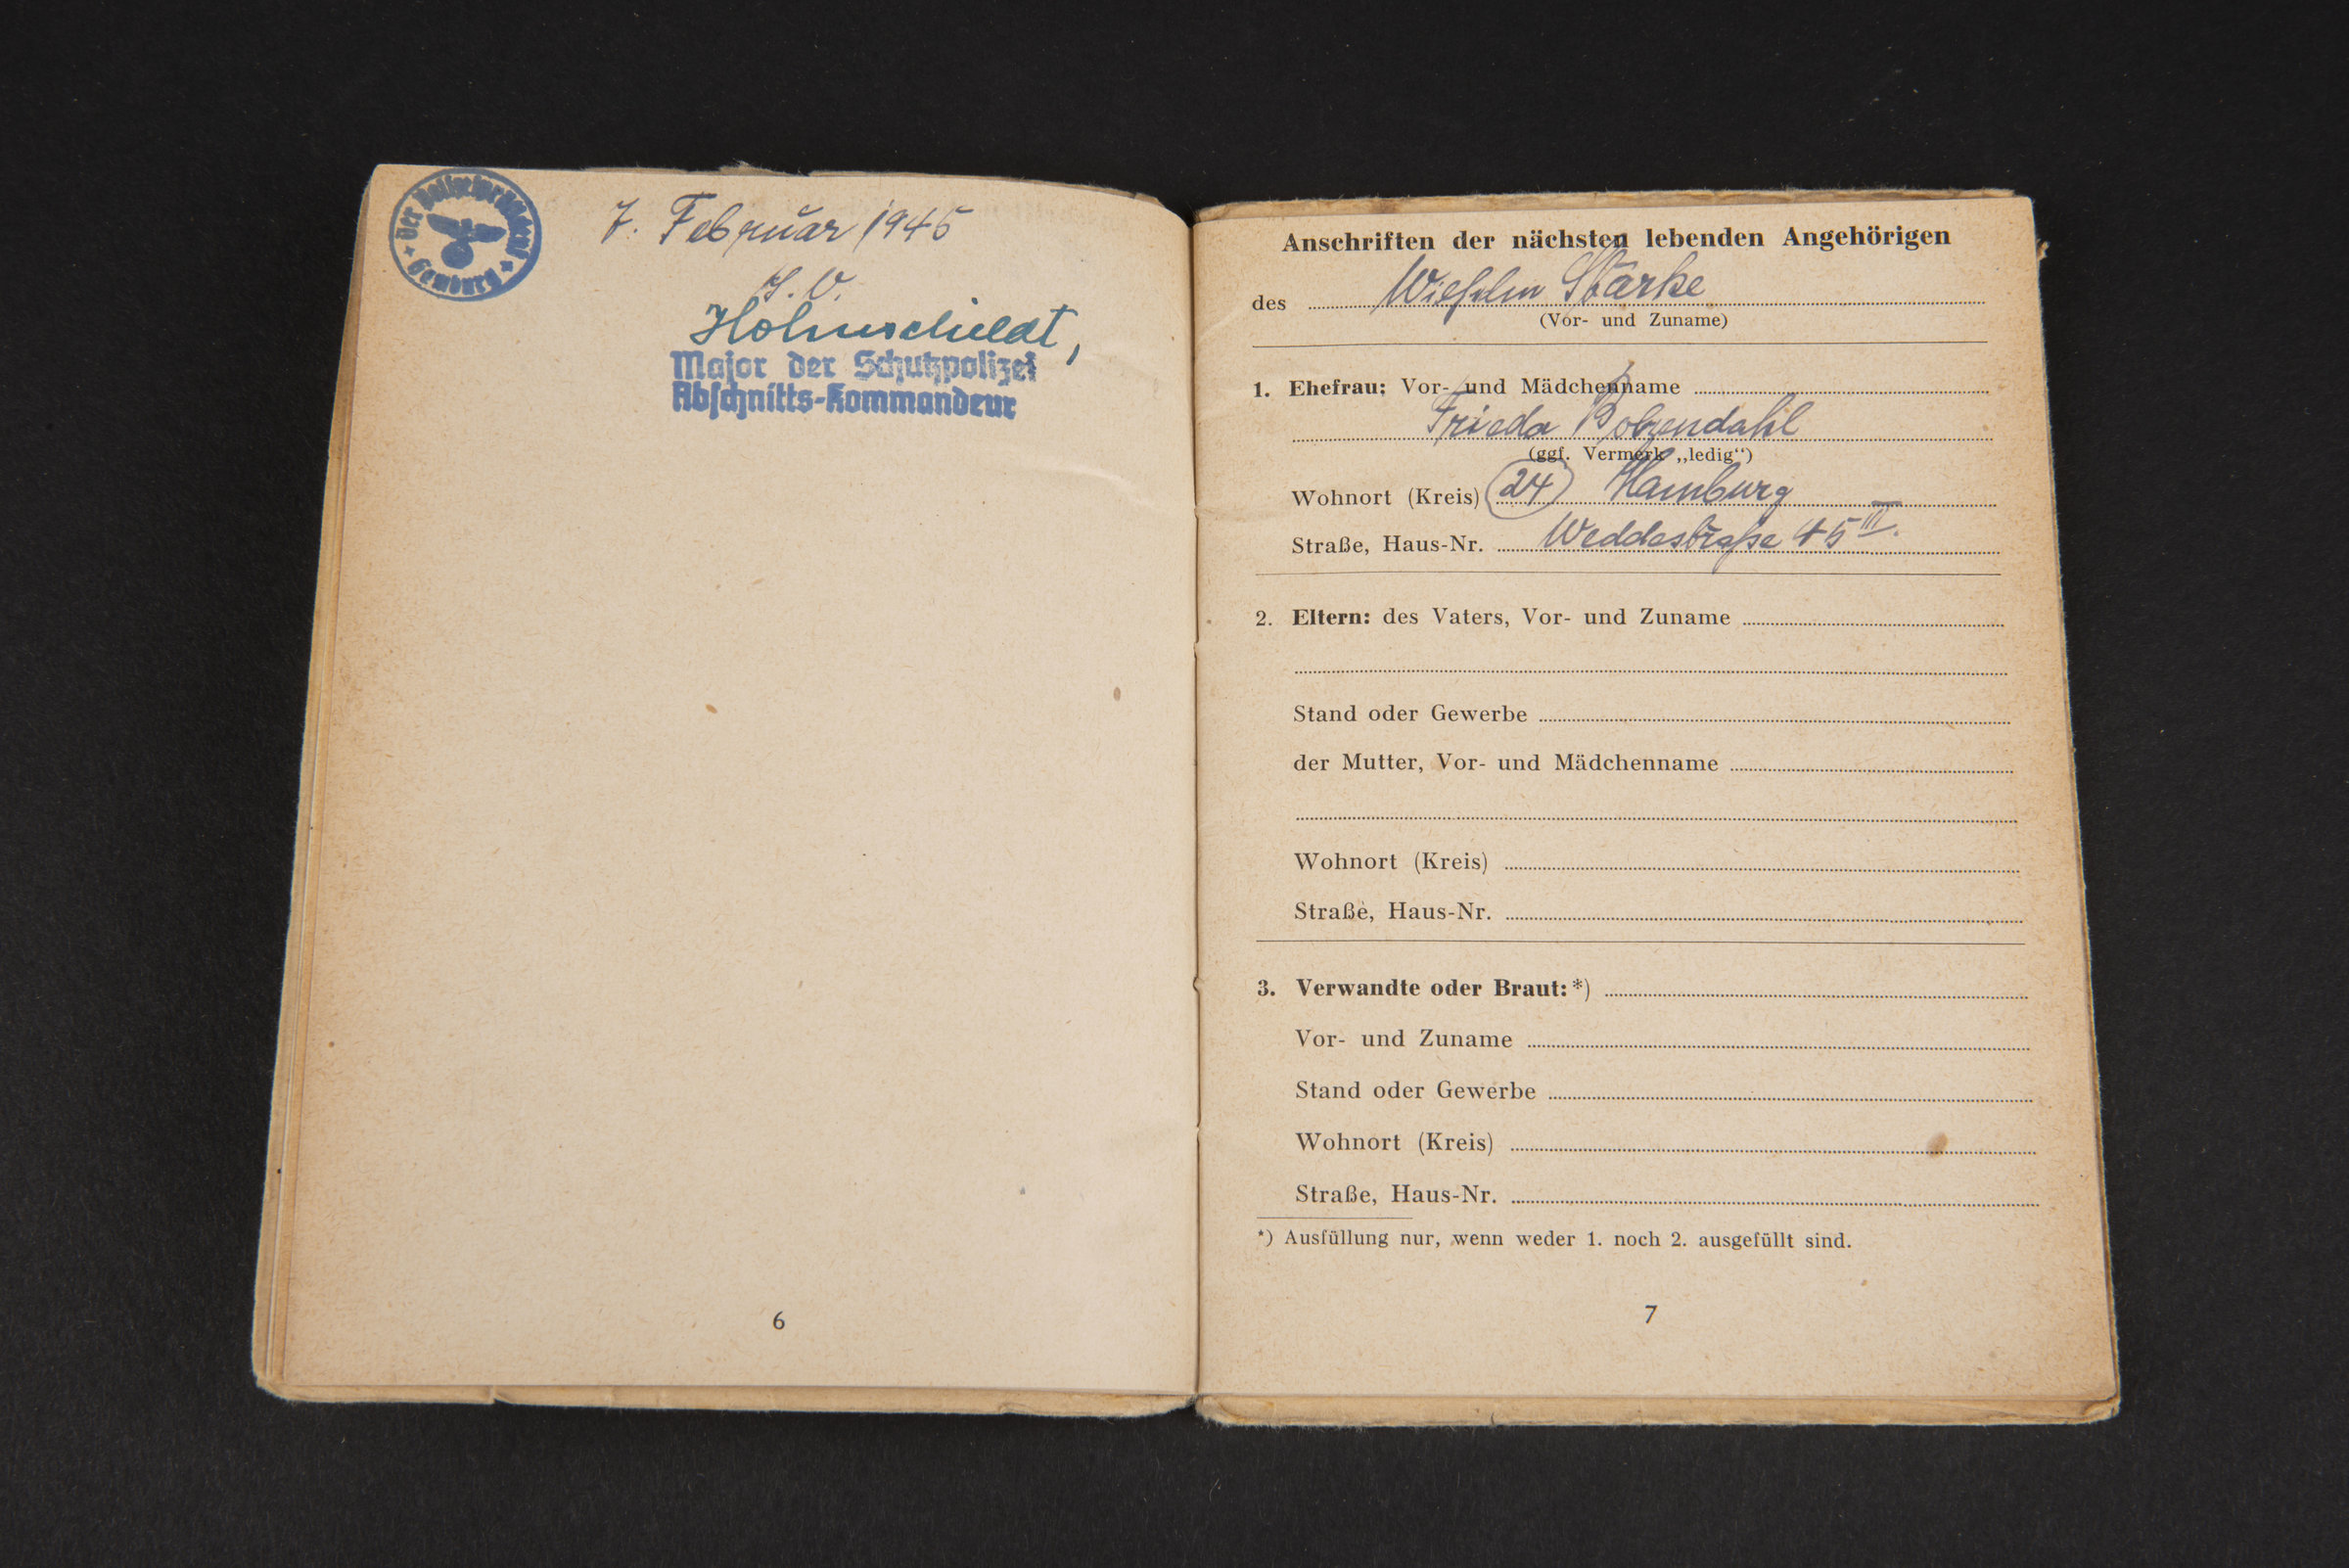 Der Polizeipräsident
Hamburg
7. Februar 1945
I. V.
Holmschieldt,
Major der Schutzpolizei
Abschnitts-Kommandeur
6
Anschriften der nächsten lebenden Angehörigen
des Wilhelm Starke
(Vor- und Zuname)
1. Ehefrau: Vor- und Mädchenname
Frieda Bolzendahl
(ggf. Vermerk „ledig“)
Wohnort (Kreis) 24 Hamburg
Straße, Haus-Nr. Weddestraße 45 III.
2. Eltern: des Vaters, Vor- und Zuname
Stand oder Gewerbe
der Mutter, Vor- und Mädchenname
Wohnort (Kreis)
Straße, Haus-Nr.
3. Verwandte oder Braut:*)
Vor- und Zuname
Stand oder Gewerbe
Wohnort (Kreis)
Straße, Haus-Nr.
*) Ausfüllung nur, wenn weder 1. noch 2. ausgefüllt sind.
7